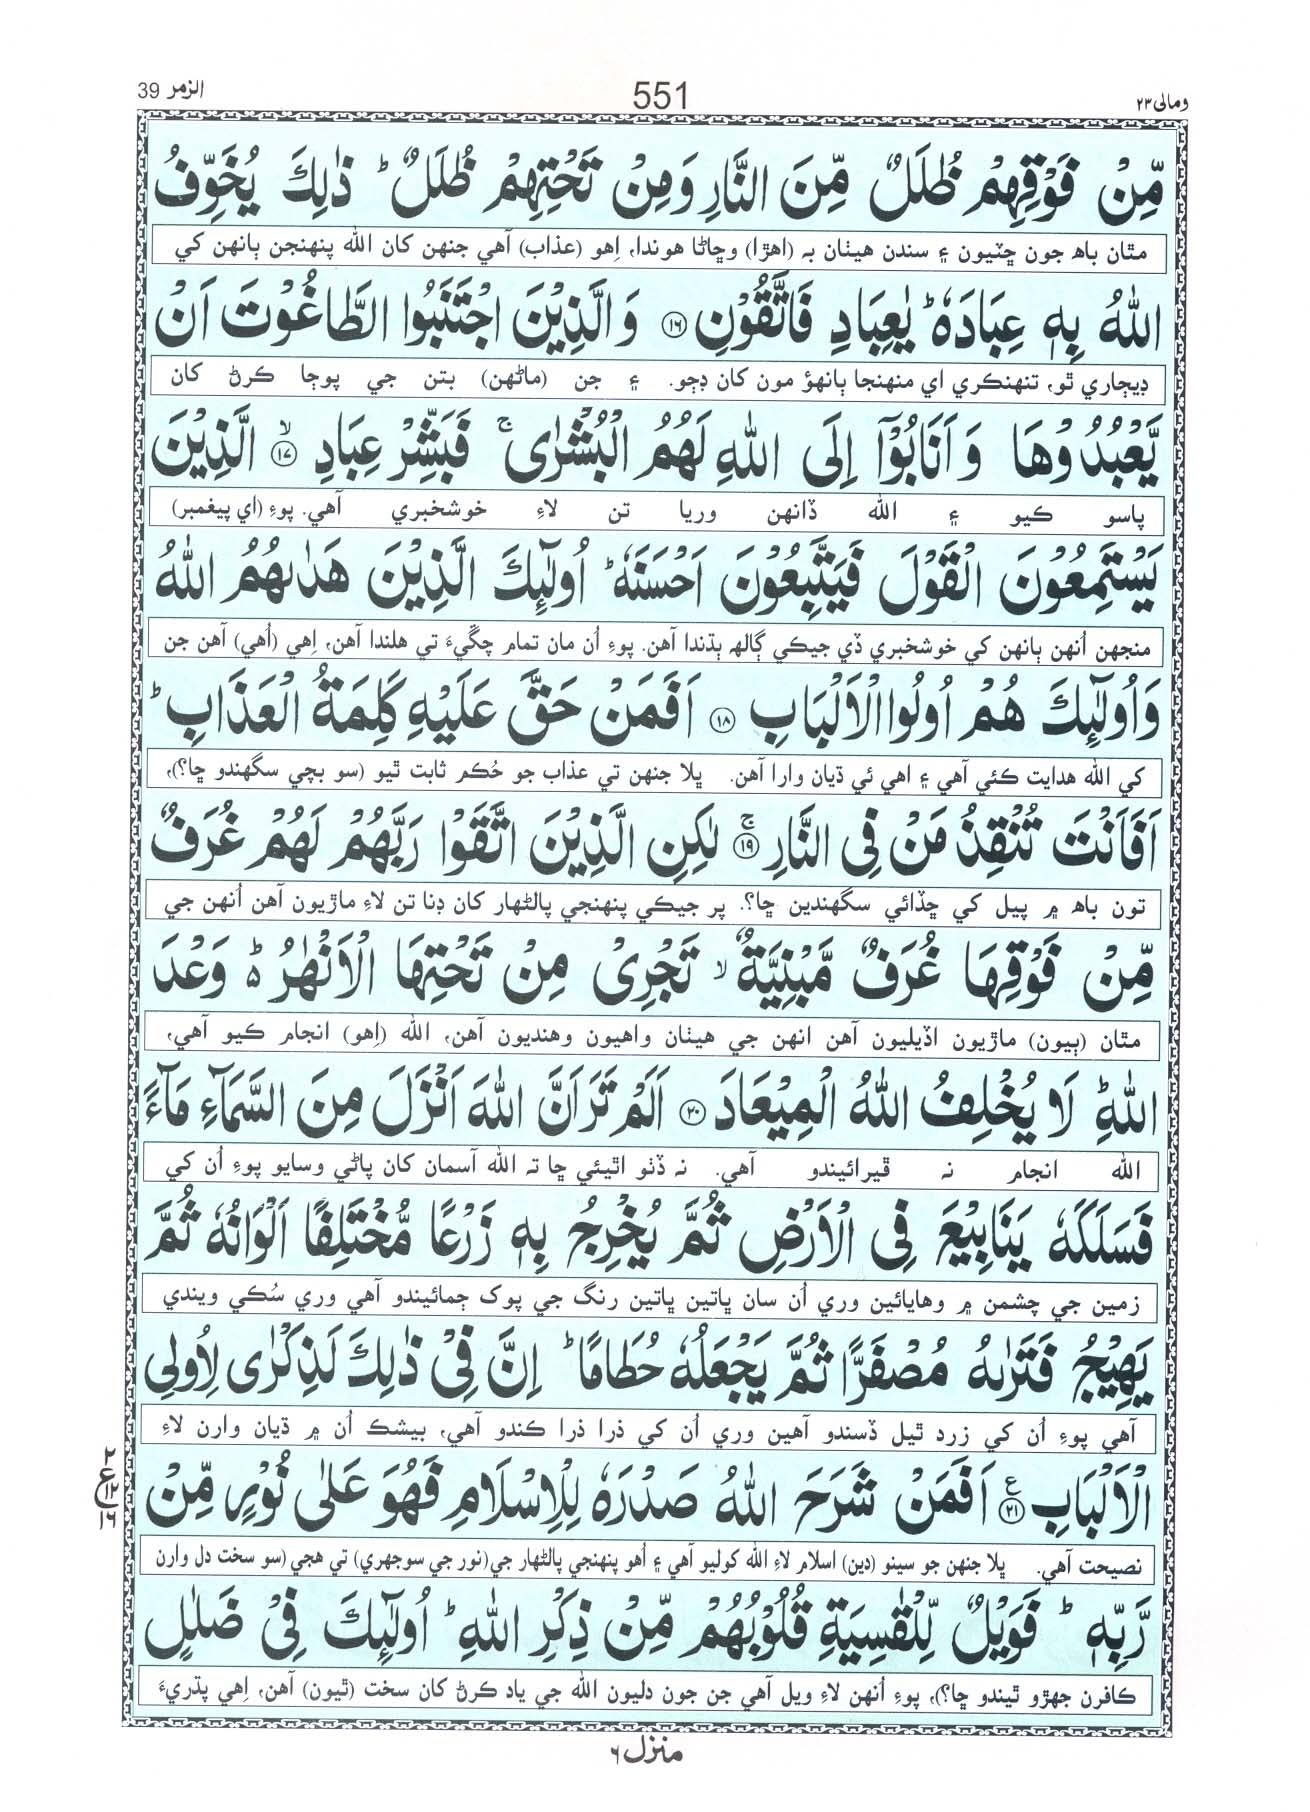 الزمر 39
551
ومالی ۲۳
مِّنْ فَوْقِهِمْ ظُلَلٌ مِّنَ النَّارِ وَمِنْ تَحْتِهِمْ ظُلَلٌ ؕ ذٰلِكَ يُخَوِّفُ
مٿان باھ جون ڇٽيون ۽ سندن هيٺان بہ (اهڙا) وڇاڻا هوندا، اِهو (عذاب) آهي جنهن کان الله پنهنجن ٻانهن کي
اللّٰهُ بِهٖ عِبَادَهٗ ؕ يٰعِبَادِ فَاتَّقُوْنِ ۝۱۶ وَالَّذِيْنَ اجْتَنَبُوا الطَّاغُوْتَ اَنْ
ڊيڄاري ٿو، تنهنڪري اي منهنجا ٻانهؤ مون کان ڊڄو. ۽ جن (ماڻهن) بتن جي پوڄا ڪرڻ کان
يَّعْبُدُوْهَا وَاَنَابُوْۤا اِلَى اللّٰهِ لَهُمُ الْبُشْرٰى ۚ فَبَشِّرْ عِبَادِ ۝۱۷ۙ الَّذِيْنَ
پاسو ڪيو ۽ الله ڏانهن وريا تن لاءِ خوشخبري آهي. پوءِ (اي پيغمبر)
يَسْتَمِعُوْنَ الْقَوْلَ فَيَتَّبِعُوْنَ اَحْسَنَهٗ ؕ اُولٰٓئِكَ الَّذِيْنَ هَدٰىهُمُ اللّٰهُ
منجهن اُنهن ٻانهن کي خوشخبري ڏي جيڪي ڳالھ ٻڌندا آهن. پوءِ اُن مان تمام چڱيءَ تي هلندا آهن، اِهي (اُهي) آهن جن
وَاُولٰٓئِكَ هُمْ اُولُوا الْاَلْبَابِ ۝۱۸ اَفَمَنْ حَقَّ عَلَيْهِ كَلِمَةُ الْعَذَابِ ؕ
کي الله هدايت ڪئي آهي ۽ اهي ئي ڌيان وارا آهن. ڀلا جنهن تي عذاب جو حُڪم ثابت ٿيو (سو بچي سگهندو ڇا؟)،
اَفَاَنْتَ تُنْقِذُ مَنْ فِى النَّارِ ۝۱۹ۚ لٰكِنِ الَّذِيْنَ اتَّقَوْا رَبَّهُمْ لَهُمْ غُرَفٌ
تون باھ ۾ پيل کي ڇڏائي سگهندين ڇا؟. پر جيڪي پنهنجي پالڻهار کان ڊنا تن لاءِ ماڙيون آهن اُنهن جي
مِّنْ فَوْقِهَا غُرَفٌ مَّبْنِيَّةٌ ۙ تَجْرِىْ مِنْ تَحْتِهَا الْاَنْهٰرُ ؕ وَعْدَ
مٿان (ٻيون) ماڙيون اڏيليون آهن انهن جي هيٺان واهيون وهنديون آهن، الله (اِهو) انجام ڪيو آهي،
اللّٰهِ ؕ لَا يُخْلِفُ اللّٰهُ الْمِيْعَادَ ۝۲۰ اَلَمْ تَرَ اَنَّ اللّٰهَ اَنْزَلَ مِنَ السَّمَآءِ مَآءً
الله انجام نہ ڦيرائيندو آهي. نہ ڏٺو اٿيئي ڇا تہ الله آسمان کان پاڻي وسايو پوءِ اُن کي
فَسَلَكَهٗ يَنَابِيْعَ فِى الْاَرْضِ ثُمَّ يُخْرِجُ بِهٖ زَرْعًا مُّخْتَلِفًا اَلْوَانُهٗ ثُمَّ
زمين جي چشمن ۾ وهايائين وري اُن سان ڀاتين ڀاتين رنگ جي پوک ڄمائيندو آهي وري سُڪي ويندي
يَهِيْجُ فَتَرٰىهُ مُصْفَرًّا ثُمَّ يَجْعَلُهٗ حُطَامًا ؕ اِنَّ فِىْ ذٰلِكَ لَذِكْرٰى لِاُولِى
آهي پوءِ اُن کي زرد ٿيل ڏسندو آهين وري اُن کي ذرا ذرا ڪندو آهي، بيشڪ اُن ۾ ڌيان وارن لاءِ
الْاَلْبَابِ ۝۲۱ۧ اَفَمَنْ شَرَحَ اللّٰهُ صَدْرَهٗ لِلْاِسْلَامِ فَهُوَ عَلٰى نُوْرٍ مِّنْ
۲ ع ۱۲ ۱۶
نصيحت آهي. ڀلا جنهن جو سينو (دين) اسلام لاءِ الله کوليو آهي ۽ اُهو پنهنجي پالڻهار جي(نور جي سوجهري) تي هجي (سو سخت دل وارن
رَّبِّهٖ ؕ فَوَيْلٌ لِّلْقٰسِيَةِ قُلُوْبُهُمْ مِّنْ ذِكْرِ اللّٰهِ ؕ اُولٰٓئِكَ فِىْ ضَلٰلٍ
ڪافرن جهڙو ٿيندو ڇا؟)، پوءِ اُنهن لاءِ ويل آهي جن جون دليون الله جي ياد ڪرڻ کان سخت (ٿيون) آهن، اِهي پڌريءَ
منزل ۶